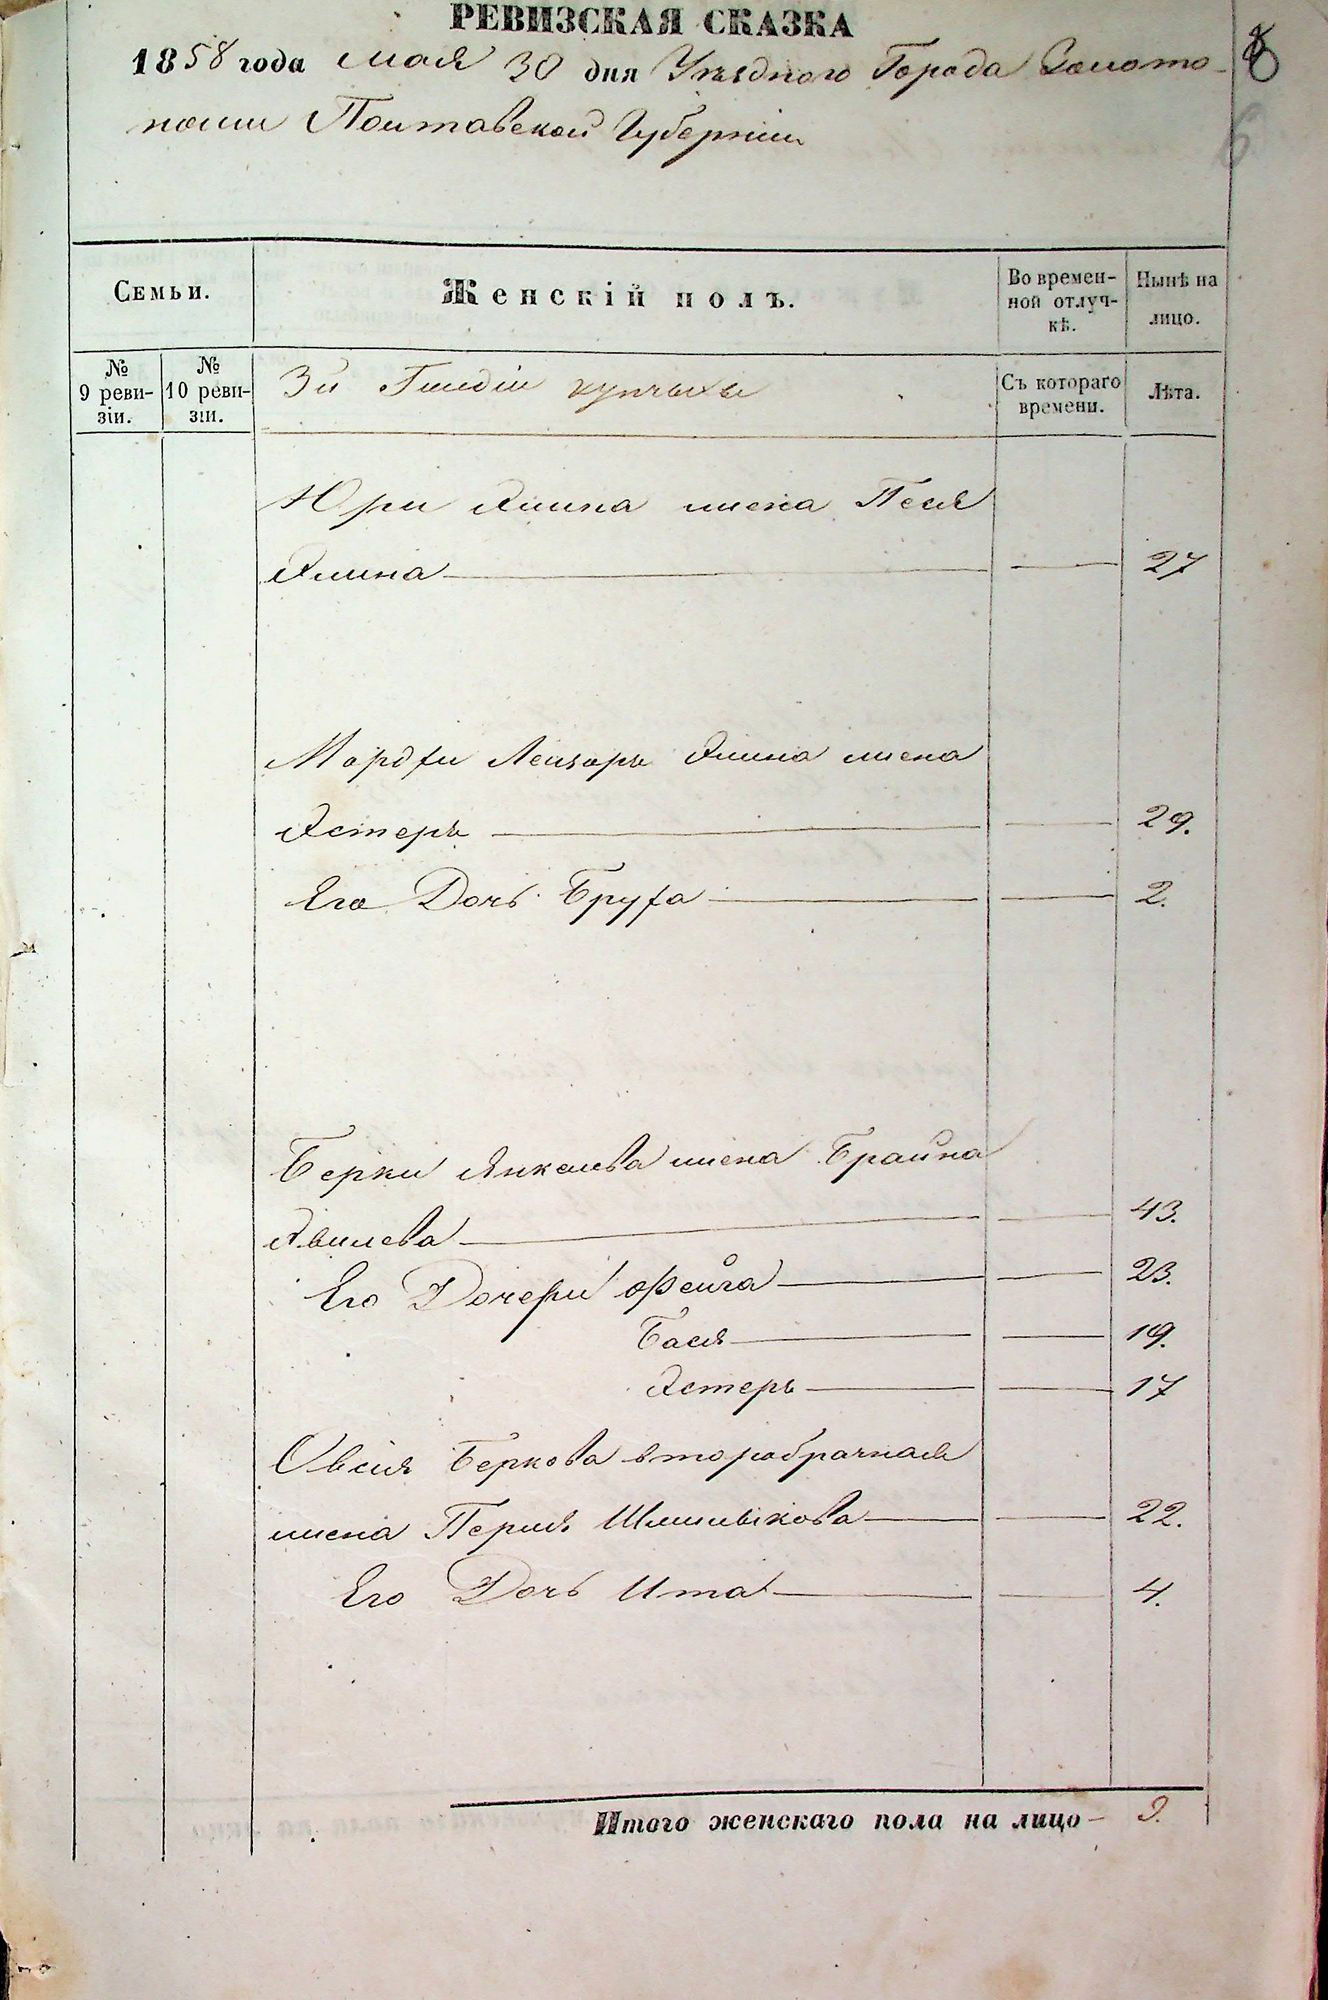 РЕВИЗСКАЯ СКАЗКА
1858 года мая 30 дня Уѣзднаго Города Золото-
ноши Полтавской Губерніи
8
6
Семьи.
Женскій полъ.
Во времен-
ной отлуч-
кѣ.
Нынѣ на
лицо.
№
9 реви-
зіи.
№
10 реви-
зіи.
3й Гилдіи купчыхы
Съ котораго
времени.
Лѣта.
Юри жена Песя
27
Мордхи Лейзоръ жена
Эстеръ 29.
Его Дочь Бруха 2.
Берки Янкелева жена Брайна
43.
Его Дочери Фейга 23.
Бася 19.
Эстеръ 17
Овсія Беркова второбрачная
жена Перля 22.
Его Дочь Ита 4.
Итого женскаго пола на лицо - 9.